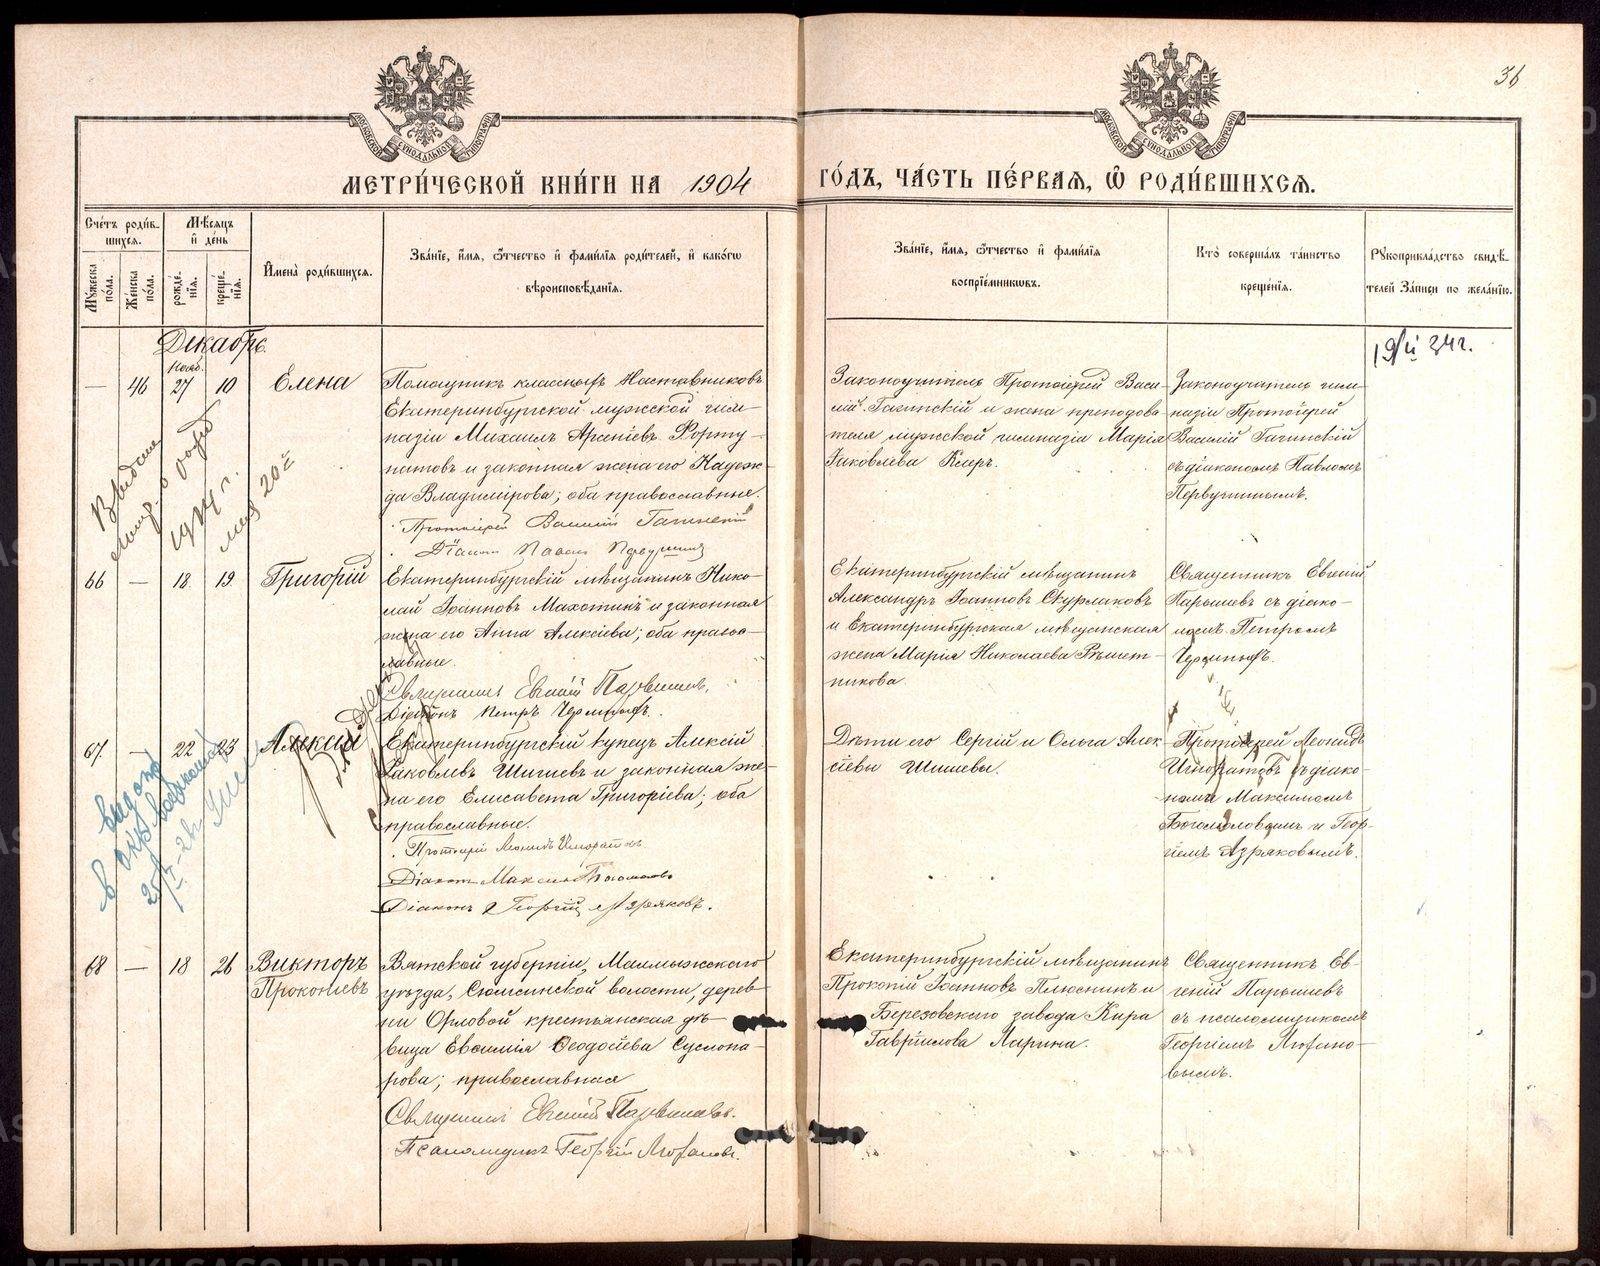 36
МЕТРИ́ЧЕСКОЙ КНИ́ГИ НА 1904 ГО́ДЪ, ЧА́СТЬ ПЕ́РВАѦ, Ѽ РОДИ́ВШИХСѦ.
Сче́тъ роди́в-
шихся.
Му́жеска по́ла.
Же́нска по́ла.
Мѣ́сяцъ
и҆ де́нь
рожде́-
нїя.
креще́-
нїя.
И҆мена̀ роди́вшихся.
Зва́нїе, и҆́мя, ѻ҆́тчество и҆ фами́лїя роди́телей, и҆ како́гѡ
вѣроисповѣ́данїя.
Зва́нїе, и҆́мя, ѻ҆́тчество и҆ фами́лїя
воспрїе́мникѡвъ.
Кто̀ соверша́лъ та́инство
креще́нїя.
Рꙋкоприкла́дство свидѣ́-
телей за́писи по жела́нїю.
Декабрь.
19/II 24 г.
— 46 Нояб. 27 10 Елена
Помощникъ классныхъ Наставниковъ
Екатеринбургской мужской гим-
назіи Михаилъ Арсеніевъ Форту-
натовъ и законная жена его Надеж-
да Владимірова; оба православные.
Протоіерей Василій Гагинскій
Діаконъ Павелъ Первушинъ
Законоучитель Протоіерей Васи-
лій Гагинскій и жена преподова-
теля мужской гимназіи Марія
Іаковлева Клеръ.
Законоучитель гим-
назіи Протоіерей
Василій Гагинскій
съ діакономъ Павломъ
Первушинымъ.
1914 г.
мая 20
66 — 18 19 Григорій
Екатеринбургскій мѣщанинъ Нико-
лай Іоанновъ Махоткинъ и законная
жена его Анна Алексіева; оба правос-
лавные.
Священникъ Евгеній Парышевъ.
Діаконъ Петръ
Екатеринбургскій мѣщанинъ
Александръ Іоанновъ Скурлаковъ
и Екатеринбургская мѣщанская
жена Марія Николаева Рѣшет-
никова.
Священникъ Евгеній
Парышевъ съ діако-
номъ Петромъ
67. — 22 23 Алексій
Екатеринбургскій купецъ Алексій
Іаковлевъ Шишевъ и законная же-
на его Елисавета Григоріева; оба
православные.
Протоіерей Леонидъ Игноратовъ.
Діаконъ Максимъ Богомоловъ
Діаконъ Георгій Азряковъ.
Дѣти его Сергій и Ольга Алек-
сіевы Шишевы.
Протоіерей Леонидъ
Игноратовъ съ діако-
нами Максимомъ
Богомоловымъ и Геор-
гіемъ Азряковымъ.
68 — 18 26 Викторъ
Прокопіевъ
Вятской губерніи, Малмыжскаго
уѣзда, Сюмсинской волости, дерев-
ни Орловой крестьянская дѣ-
вица Евфимія Ѳеодосіева Суслопа-
рова; православная
Священникъ Евгеній Парышевъ.
Псаломщикъ Георгій Люхановъ.
Екатеринбургскій мѣщанинъ
Прокопій Іоанновъ Плюснинъ и
Березовскаго завода Кира
Гавріилова Ларина.
Священникъ Ев-
геній Парышевъ
съ псаломщикомъ
Георгіемъ Люхано-
вымъ.